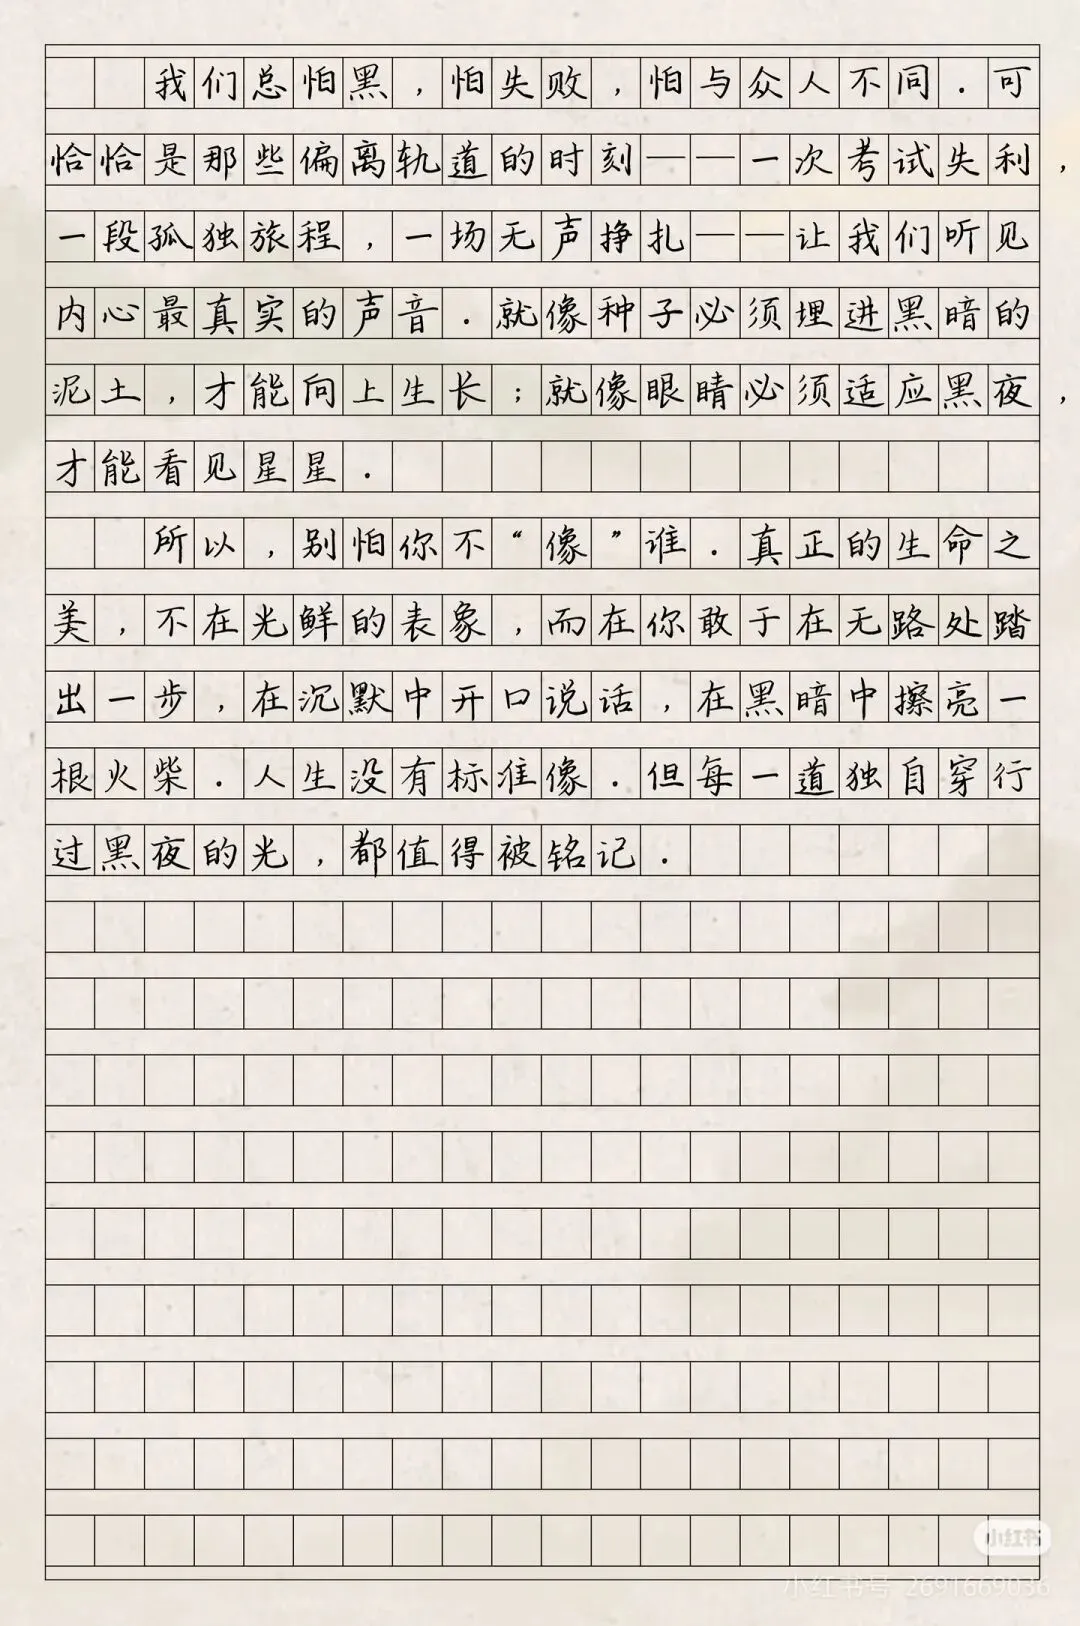 我们总怕黑，怕失败，怕与众人不同．可
恰恰是那些偏离轨道的时刻——一次考试失利，
一段孤独旅程，一场无声挣扎——让我们听见
内心最真实的声音．就像种子必须埋进黑暗的
泥土，才能向上生长；就像眼睛必须适应黑夜，
才能看见星星．
所以，别怕你不“像”谁．真正的生命之
美，不在光鲜的表象，而在你敢于在无路处踏
出一步，在沉默中开口说话，在黑暗中擦亮一
根火柴．人生没有标准像．但每一道独自穿行
过黑夜的光，都值得被铭记．
小红书
小红书号 2691669036